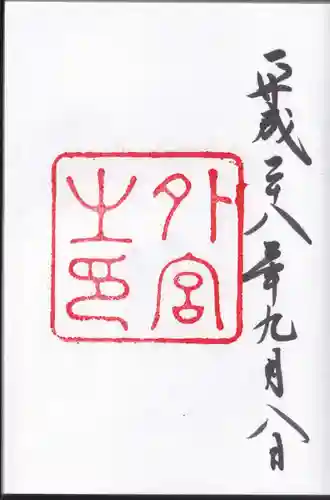 平成二十八年九月八日
外宮
之印